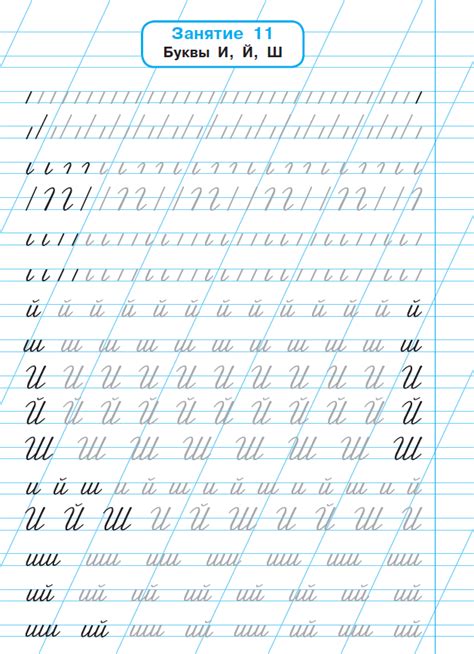 Занятие 11
Буквы И, Й, Ш
й й й й й й й й й й й й й
ш ш ш ш ш ш ш ш ш ш ш
И И И И И И И И И И И
Й Й Й Й Й Й Й Й Й Й Й
Ш Ш Ш Ш Ш Ш Ш Ш
и й ш и й ш и й ш и й ш и й
И Й Ш И Й Ш И Й Ш И
ши ши ши ши ши ши ши ши
ий ий ий ий ий ий ий ий
ши ий ши ий ши ий ши ий